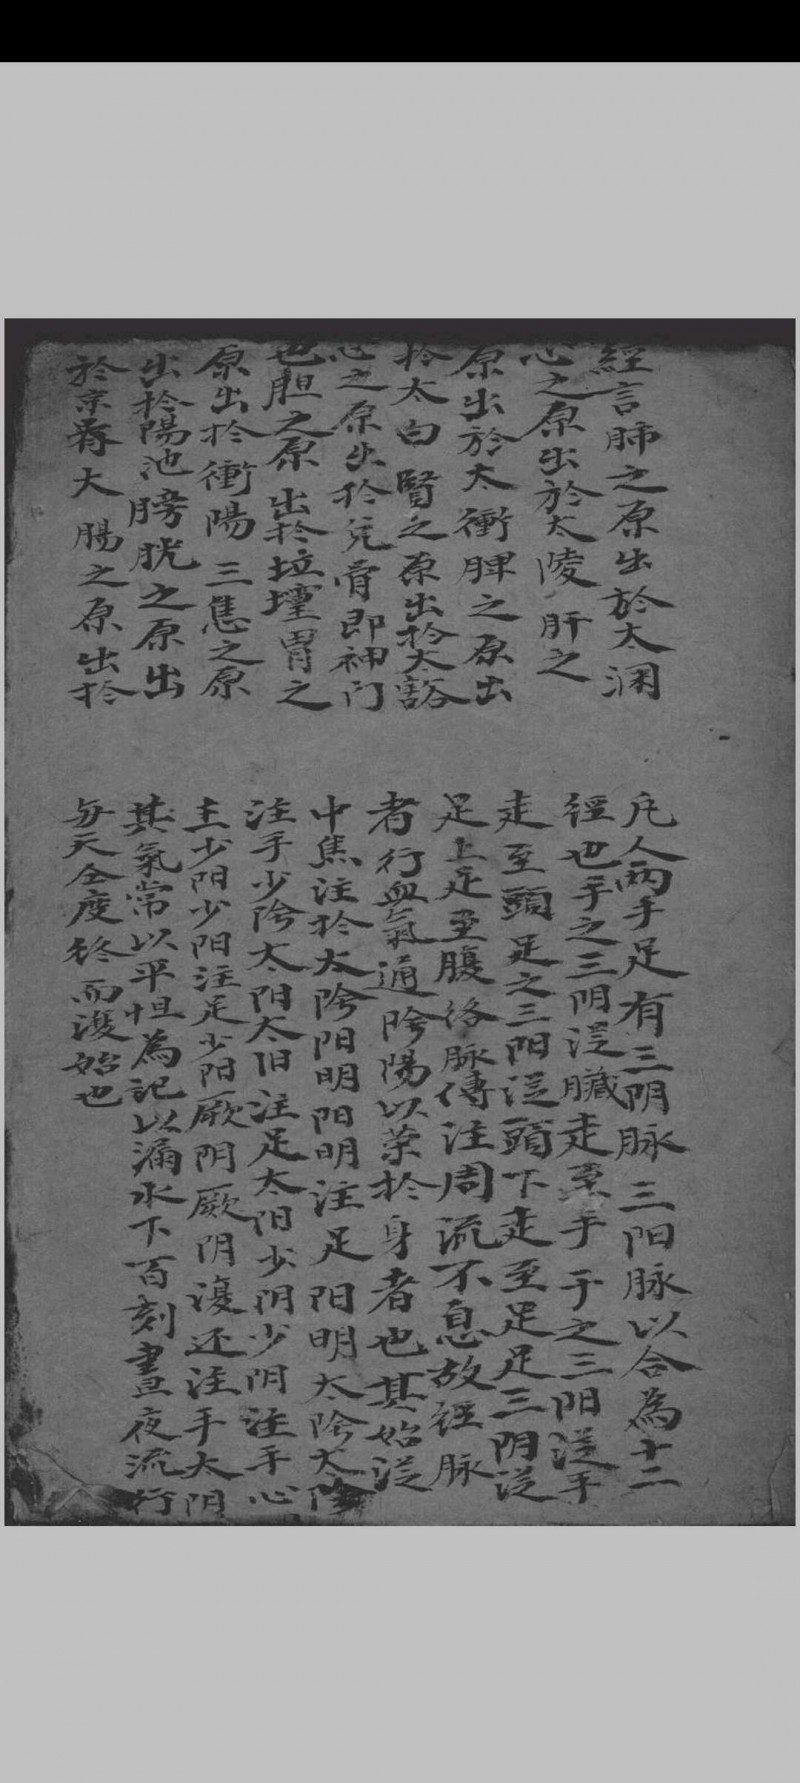 經言肺之原出於太渊
心之原出於太陵肝之
原出於太衝脾之原出
扵太白腎之原出扵太谿
心之原出扵兌骨即神门
也胆之原出扵坵墟胃之
原出扵衝陽三焦之原
出扵陽池膀胱之原出
於京骨大腸之原出扵
凡人两手足有三阴脉三阳脉以合為十二
徑也手之三阴從臓走至手手之三阳從手
走至頭足之三阳從頭下走至足足三阴從
足上走至腹络脉傳注周流不息故徑脉
者行血氣通陰陽以荣扵身者也其始從
中焦注扵太陰阳明阳明注足阳明太陰太陰
注手少陰太阳太阳注足太阳少阴少阴注手心
主少阳少阳注足少阳厥阴厥阴復还注手太阴
其氣常以平怛為記以漏水下百刻晝夜流行
与天仝度终而復始也